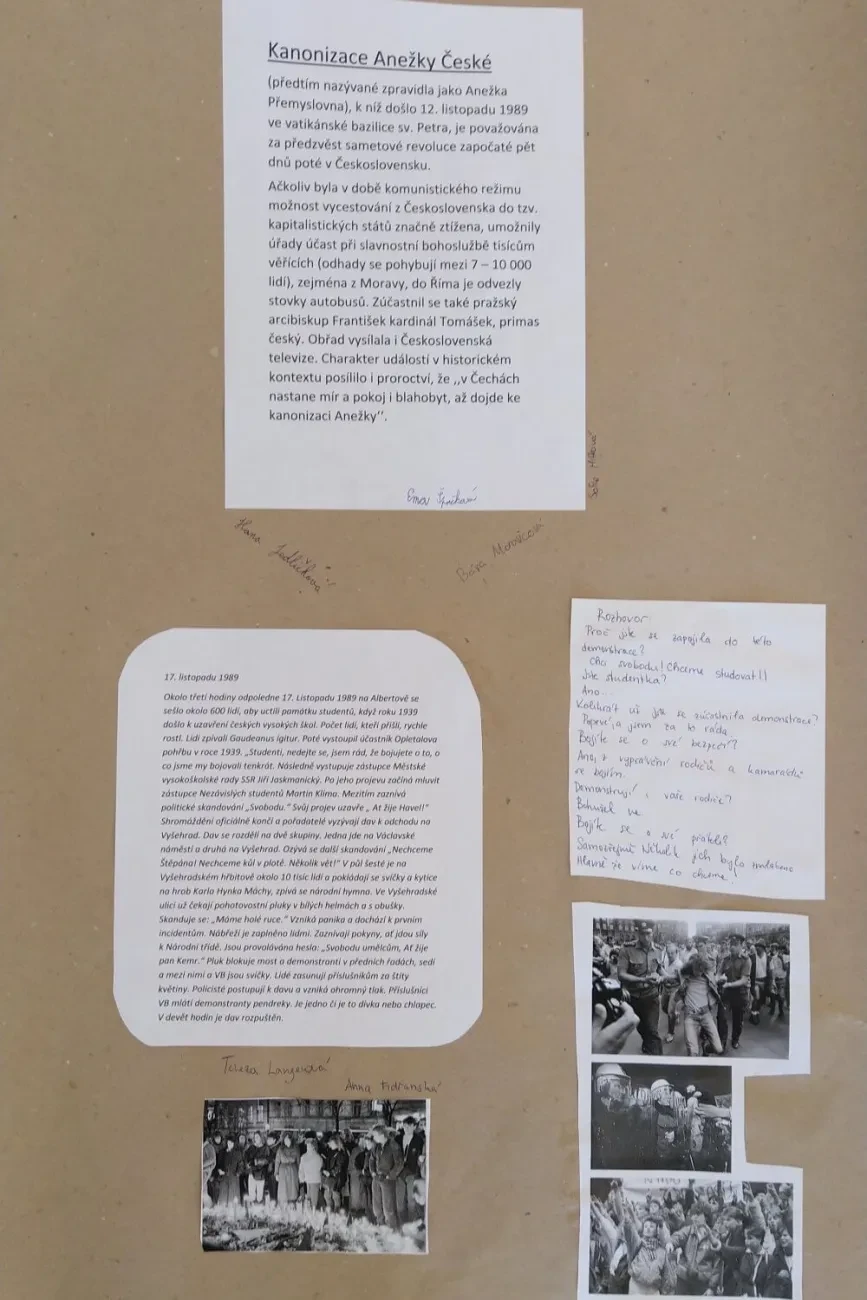 Kanonizace Anežky České
(předtím nazývané zpravidla jako Anežka
Přemyslovna), k níž došlo 12. listopadu 1989
ve vatikánské bazilice sv. Petra, je považována
za předzvěst sametové revoluce započaté pět
dnů poté v Československu.
Ačkoliv byla v době komunistického režimu
možnost vycestování z Československa do tzv.
kapitalistických států značně ztížena, umožnily
úřady účast při slavnostní bohoslužbě tisícům
věřících (odhady se pohybují mezi 7 – 10 000
lidí), zejména z Moravy, do Říma je odvezly
stovky autobusů. Zúčastnil se také pražský
arcibiskup František kardinál Tomášek, primas
český. Obřad vysílala i Československá
televize. Charakter událostí v historickém
kontextu posílilo i proroctví, že ,,v Čechách
nastane mír a pokoj i blahobyt, až dojde ke
kanonizaci Anežky‘‘.
Ema
Hana Jedličková
Bára
17. listopadu 1989
Okolo třetí hodiny odpoledne 17. Listopadu 1989 na Albertově se
sešlo okolo 600 lidí, aby uctili památku studentů, když roku 1939
došlo k uzavření českých vysokých škol. Počet lidí, kteří přišli, rychle
rostl. Lidi zpívali Gaudeanus igitur. Poté vystoupil účastník Opletalova
pohřbu v roce 1939. „Studenti, nedejte se, jsem rád, že bojujete o to, o
co jsme my bojovali tenkrát. Následně vystupuje zástupce Městské
vysokoškolské rady SSR Jiří Jaskmanický. Po jeho projevu začíná mluvit
zástupce Nezávislých studentů Martin Klíma. Mezitím zaznívá
politické skandování „Svobodu.“ Svůj projev uzavře „ Ať žije Havel!“
Shromáždění oficiálně končí a pořadatelé vyzývají dav k odchodu na
Vyšehrad. Dav se rozdělí na dvě skupiny. Jedna jde na Václavské
náměstí a druhá na Vyšehrad. Ozývá se další skandování „Nechceme
Štěpána! Nechceme kůl v plotě. Několik vět!“ V půl šesté je na
Vyšehradském hřbitově okolo 10 tisíc lidí a pokládají se svíčky a kytice
na hrob Karla Hynka Máchy, zpívá se národní hymna. Ve Vyšehradské
ulici už čekají pohotovostní pluky v bílých helmách a s obušky.
Skanduje se: „Máme holé ruce.“ Vzniká panika a dochází k prvním
incidentům. Nábřeží je zaplněno lidmi. Zaznívají pokyny, ať jdou síly
k Národní třídě. Jsou provolávána hesla: „Svobodu umělcům, Ať žije
pan Kemr.“ Pluk blokuje most a demonstranti v předních řadách, sedí
a mezi nimi a VB jsou svíčky. Lidé zasunují příslušníkům za štíty
květiny. Policisté postupují k davu a vzniká ohromný tlak. Příslušníci
VB mlátí demonstranty pendreky. Je jedno či je to dívka nebo chlapec.
V devět hodin je dav rozpuštěn.
Tereza Langerová
Anna
Rozhovor:
Proč jste se zapojila do této
demonstrace?
Chci svobodu! Chceme studovat!!
Jste studentka?
Ano...
Kolikrát už jste se zúčastnila demonstrace?
Poprvé, a jsem za to ráda.
Bojíte se o své bezpečí?
Ano, z vyprávění rodičů a kamarádů
se bojím.
Demonstrují i vaše rodiče?
Bohužel ne
Bojíte se o své přátele?
Samozřejmě. Několik jich bylo zmláceno
Hlavně že víme co chceme!